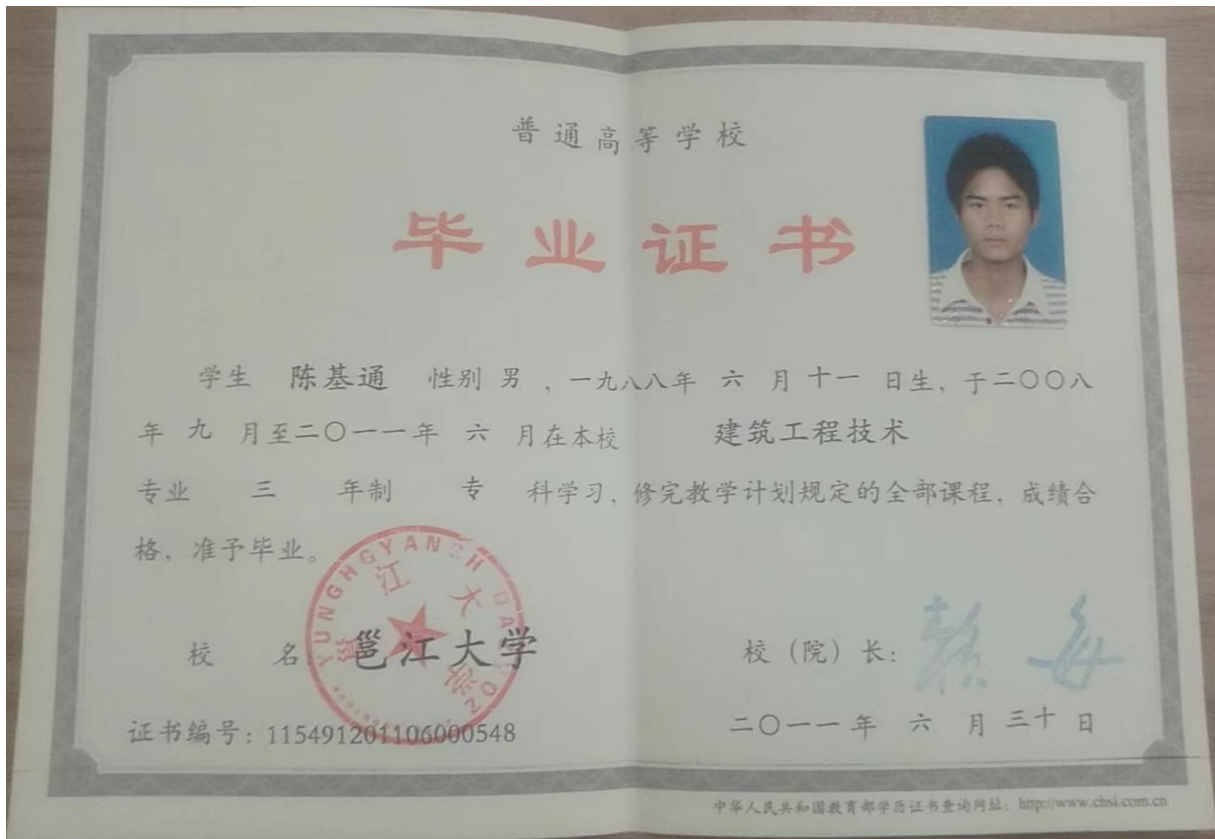 普通高等学校
毕业证书
学生 陈基通 性别 男 ，一九八八年 六 月 十一 日生，于二〇〇八
年 九 月至二〇一一年 六 月在本校 建筑工程技术
专业 三 年制 专 科学习，修完教学计划规定的全部课程，成绩合
格，准予毕业。
YUNGHGYANGH DAYOZ
邕江大学
校 名 邕江大学
校（院）长：
证书编号：115491201106000548
二〇一一年 六 月 三十 日
中华人民共和国教育部学历证书查询网址：http://www.chsi.com.cn